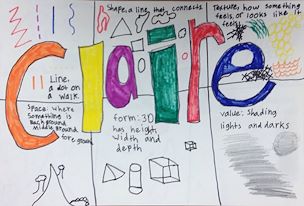 Shape, a line that connects
Texture, how something
feels, or looks like it
feels
Claire
Line.
a dot on
a walk.
Space: where
something is
Background
middle ground
fore ground
form: 3D
has height,
width and
depth
value: shading
lights and darks